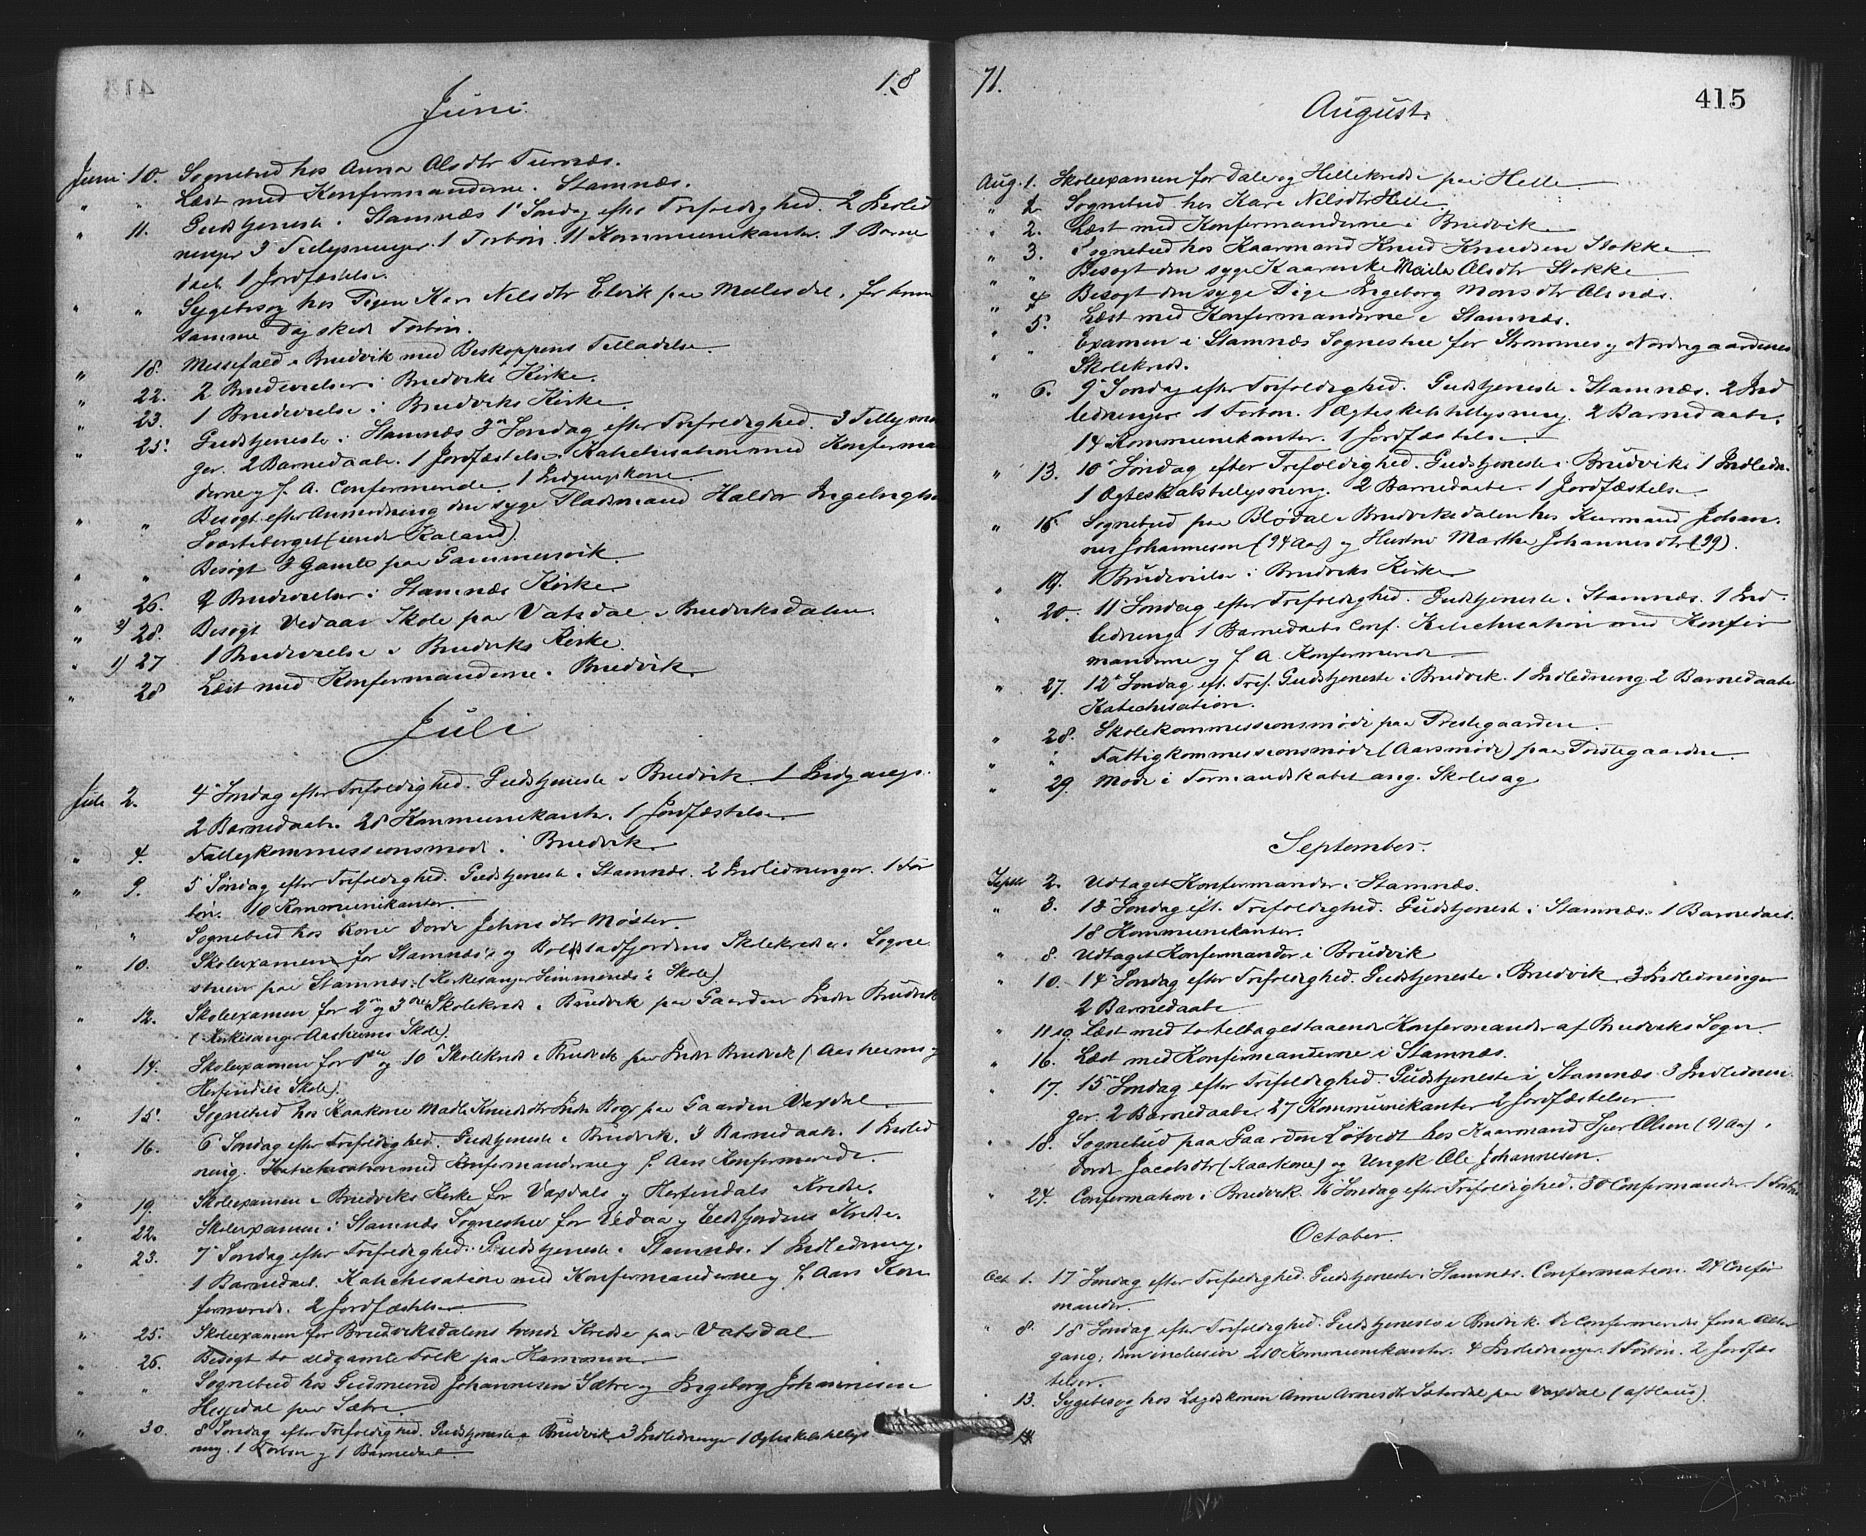 18
Juni.
Juni 10. Sognebud hos Anna Olsdtr
" " Læst med Konfirmanderne i Stamnæs.
" 11. Gudstjeneste i Stamnæs 1ste Søndag efter Trefoldighed. 2 Indled
ninger 3 Tillysninger. 1 Forbøn. 11 Kommunikanter. 1 Barne
daab. 1 Jordfæstelse.
" " Sygebesøg hos Pigen Kari Nilsdtr Elvik paa
samme Dag skede Forbøn.
" 18. Messefald i Bruvik med Biskoppens Tilladelse.
" 22. 2 Brudevielser i Bruviks Kirke.
" 23. 1 Brudevielse i Bruviks Kirke.
" 25. Gudstjeneste i Stamnæs 3die Søndag efter Trefoldighed. 3 Tillysnin
ger. 2 Barnedaab. 1 Jordfæstelse. Katechisation med Konfirman
derne og f. A. Confirmerede. 1 Indgangskone.
" " Besøgt efter Anmodning den syge Pladsmand Haldor
Svarteberget (under Kaland).
" " Besøgt 3 Gamle paa Gammersvik.
" 26. 2 Brudevielser i Stamnæs Kirke.
" 2) 28. Besøgt Vedaas Skole paa Vatsdal i Bruviksdalen.
" 1) 27 1 Brudevielse i Bruviks Kirke.
" 28 Læst med Konfirmanderne i Bruvik.
Juli
Juli 2. 4de Søndag efter Trefoldighed. Gudstjeneste i Bruvik. 1 Indgangs.
2 Barnedaab. 28 Kommunikanter. 1 Jordfæstelse.
" 4. Fattigkommissionsmøde i Bruvik.
" 9. 5 Søndag efter Trefoldighed. Gudstjeneste i Stamnæs. 2 Indledninger. 1 For
bøn. 10 Kommunikanter.
" Sognebud hos Kone Dorde Johnsdtr Møster.
" 10. Skoleexamen for Stamnæs's og Bolstadfjordens Skolekredse i Sogne
stuen paa Stamnæs (Kirkesanger Simmenæs's Skole)
" 12. Skoleexamen for 2den og 3die Skolekreds i Bruvik paa Gaarden Indre Bruvik
(Kirkesanger Aasheims Skole).
" 14. Skoleexamen for 1ste og 10de Skolekreds i Bruvik paa Indre Bruvik (Aasheims og
Herfindals Skole).
" 15. Sognebud hos Kaarkone Madli Knudsdtr Indre Boge paa Gaarden Vaxdal.
" 16. 6 Søndag efter Trefoldighed. Gudstjeneste i Bruvik. 3 Barnedaab. 1 Indled
ning. Katechisation med Konfirmanderne og f. Aars Konfirmerede.
" 19. Skoleexamen i Bruviks Kirke for Vaxdals og Herfindals Kredse.
" 22. Skoleexamen i Stamnæs Sognestue for Vedaa og Eidsfjordens Kredse.
" 23. 7 Søndag efter Trefoldighed. Gudstjeneste i Stamnæs. 1 Indledning.
1 Barnedaab. Katechisation med Konfirmanderne og f. Aars Kon
firmerede. 2 Jordfæstelser
" 25. Skoleexamen for Bruviksdalens tvende Kredse paa Vatsdal
" 26. Besøgt to ældgamle Folk paa Hammeren.
" " Sognebud hos Gudmund Johannesen Sætre og Ingeborg Johannesen
Hesjedal paa Sætre
" 30. 8 Søndag efter Trefoldighed. Gudstjeneste i Bruvik. 3 Indledninger 1 Ægteskabstillys
ning. 1 Forbøn og 1 Barnedaab.
71.
415
August.
Aug. 1. Skoleexamen for Dale og Hellekreds paa Helle.
" 2 Sognebud hos Kari Nilsdtr Helle.
" 2. Læst med Konfirmanderne i Bruvik
" 3. Sognebud hos Kaarmand Knud Knudsen Stokke
" Besøgt den syge Kaarenke Madle Olsdtr Stokke
" 4 Besøgt den syge Pige Ingeborg Monsdtr Olsnæs.
" 5. Læst med Konfirmanderne i Stamnæs.
" " Examen i Stamnæs Sognestue for Strømmes og Nordregaardenes
Skolekreds.
" 6. 9 Søndag efter Trefoldighed. Gudstjeneste i Stamnæs. 2 Ind
ledninger 1 Forbøn. 1 Ægteskabstillysning. 2 Barnedaab.
14 Kommunikanter. 1 Jordfæstelse
" 13. 10 Søndag efter Trefoldighed. Gudstjeneste i Bruvik 1 Indledn.
1 Ægteskabstillysning. 2 Barnedaab. 1 Jordfæstelse.
" 16 Sognebud paa Blødal i Bruviksdalen hos Kurmand Johan-
nes Johannesen (94 Aar) og Hustru Marthe Johannesdtr (99).
" 19. 1 Brudevielse i Bruviks Kirke
" 20. 11 Søndag efter Trefoldighed. Gudstjeneste i Stamnæs. 1 Ind-
ledning 1 Barnedaabs Conf. Katechisation med Konfir
manderne og f. A. Konfirmerede
" 27. 12te Søndag eft. Tref. Gudstjeneste i Bruvik. 1 Indledning 2 Barnedaab
Katechisation.
" 28. Skolekommissionsmøde paa Prestegaarden.
" " Fattigkommissionsmøde (Aarsmøde) paa Prestegaarden
" 29. Møde i Formandskabet ang. Skolesag
September.
Septbr 2. Udtaget Konfirmander i Stamnæs.
" 3. 13 Søndag eft. Trefoldighed. Gudstjeneste i Stamnæs. 1 Barnedaab.
18 Kommunikanter.
" 8. Udtaget Konfirmander i Bruvik
" 10. 14 Søndag efter Trefoldighed. Gudstjeneste i Bruvik 3 Indledninger
2 Barnedaab.
" 11 og Læst med to tilbagestaaende Konfirmander af Bruviks Sogn.
" 16. Læst med Konfirmanderne i Stamnæs.
" 17. 15 Søndag efter Trefoldighed. Gudstjeneste i Stamnæs 3 Indlednin
ger. 2 Barnedaab. 27 Kommunikanter 2 Jordfæstelser.
" 18. Sognebud paa Gaarden Tøfredt hos Kaarmand Sjur Olsen (91 Aar),
Dorde Jacobsdtr (Kaarkone) og Ungk. Ole Johannesen.
" 24. Confirmation i Bruvik. 16 Søndag efter Trefoldighed. 30 Confirmander 1 Forbøn
October.
Oct. 1. 17 Søndag efter Trefoldighed. Gudstjeneste i Stamnæs. Confirmation. 24 Confir
mander.
" 8. 18 Søndag efter Trefoldighed. Gudstjeneste i Bruvik. De Confirmeredes første Alter
gang; dem inclusive 210 Kommunikanter. 4 Indledninger. 1 Forbøn. 2 Jordfæs
telser.
" 13. Sygebesøg hos Lægdskonen Anna Arnesdtr paa Vaxdal
14